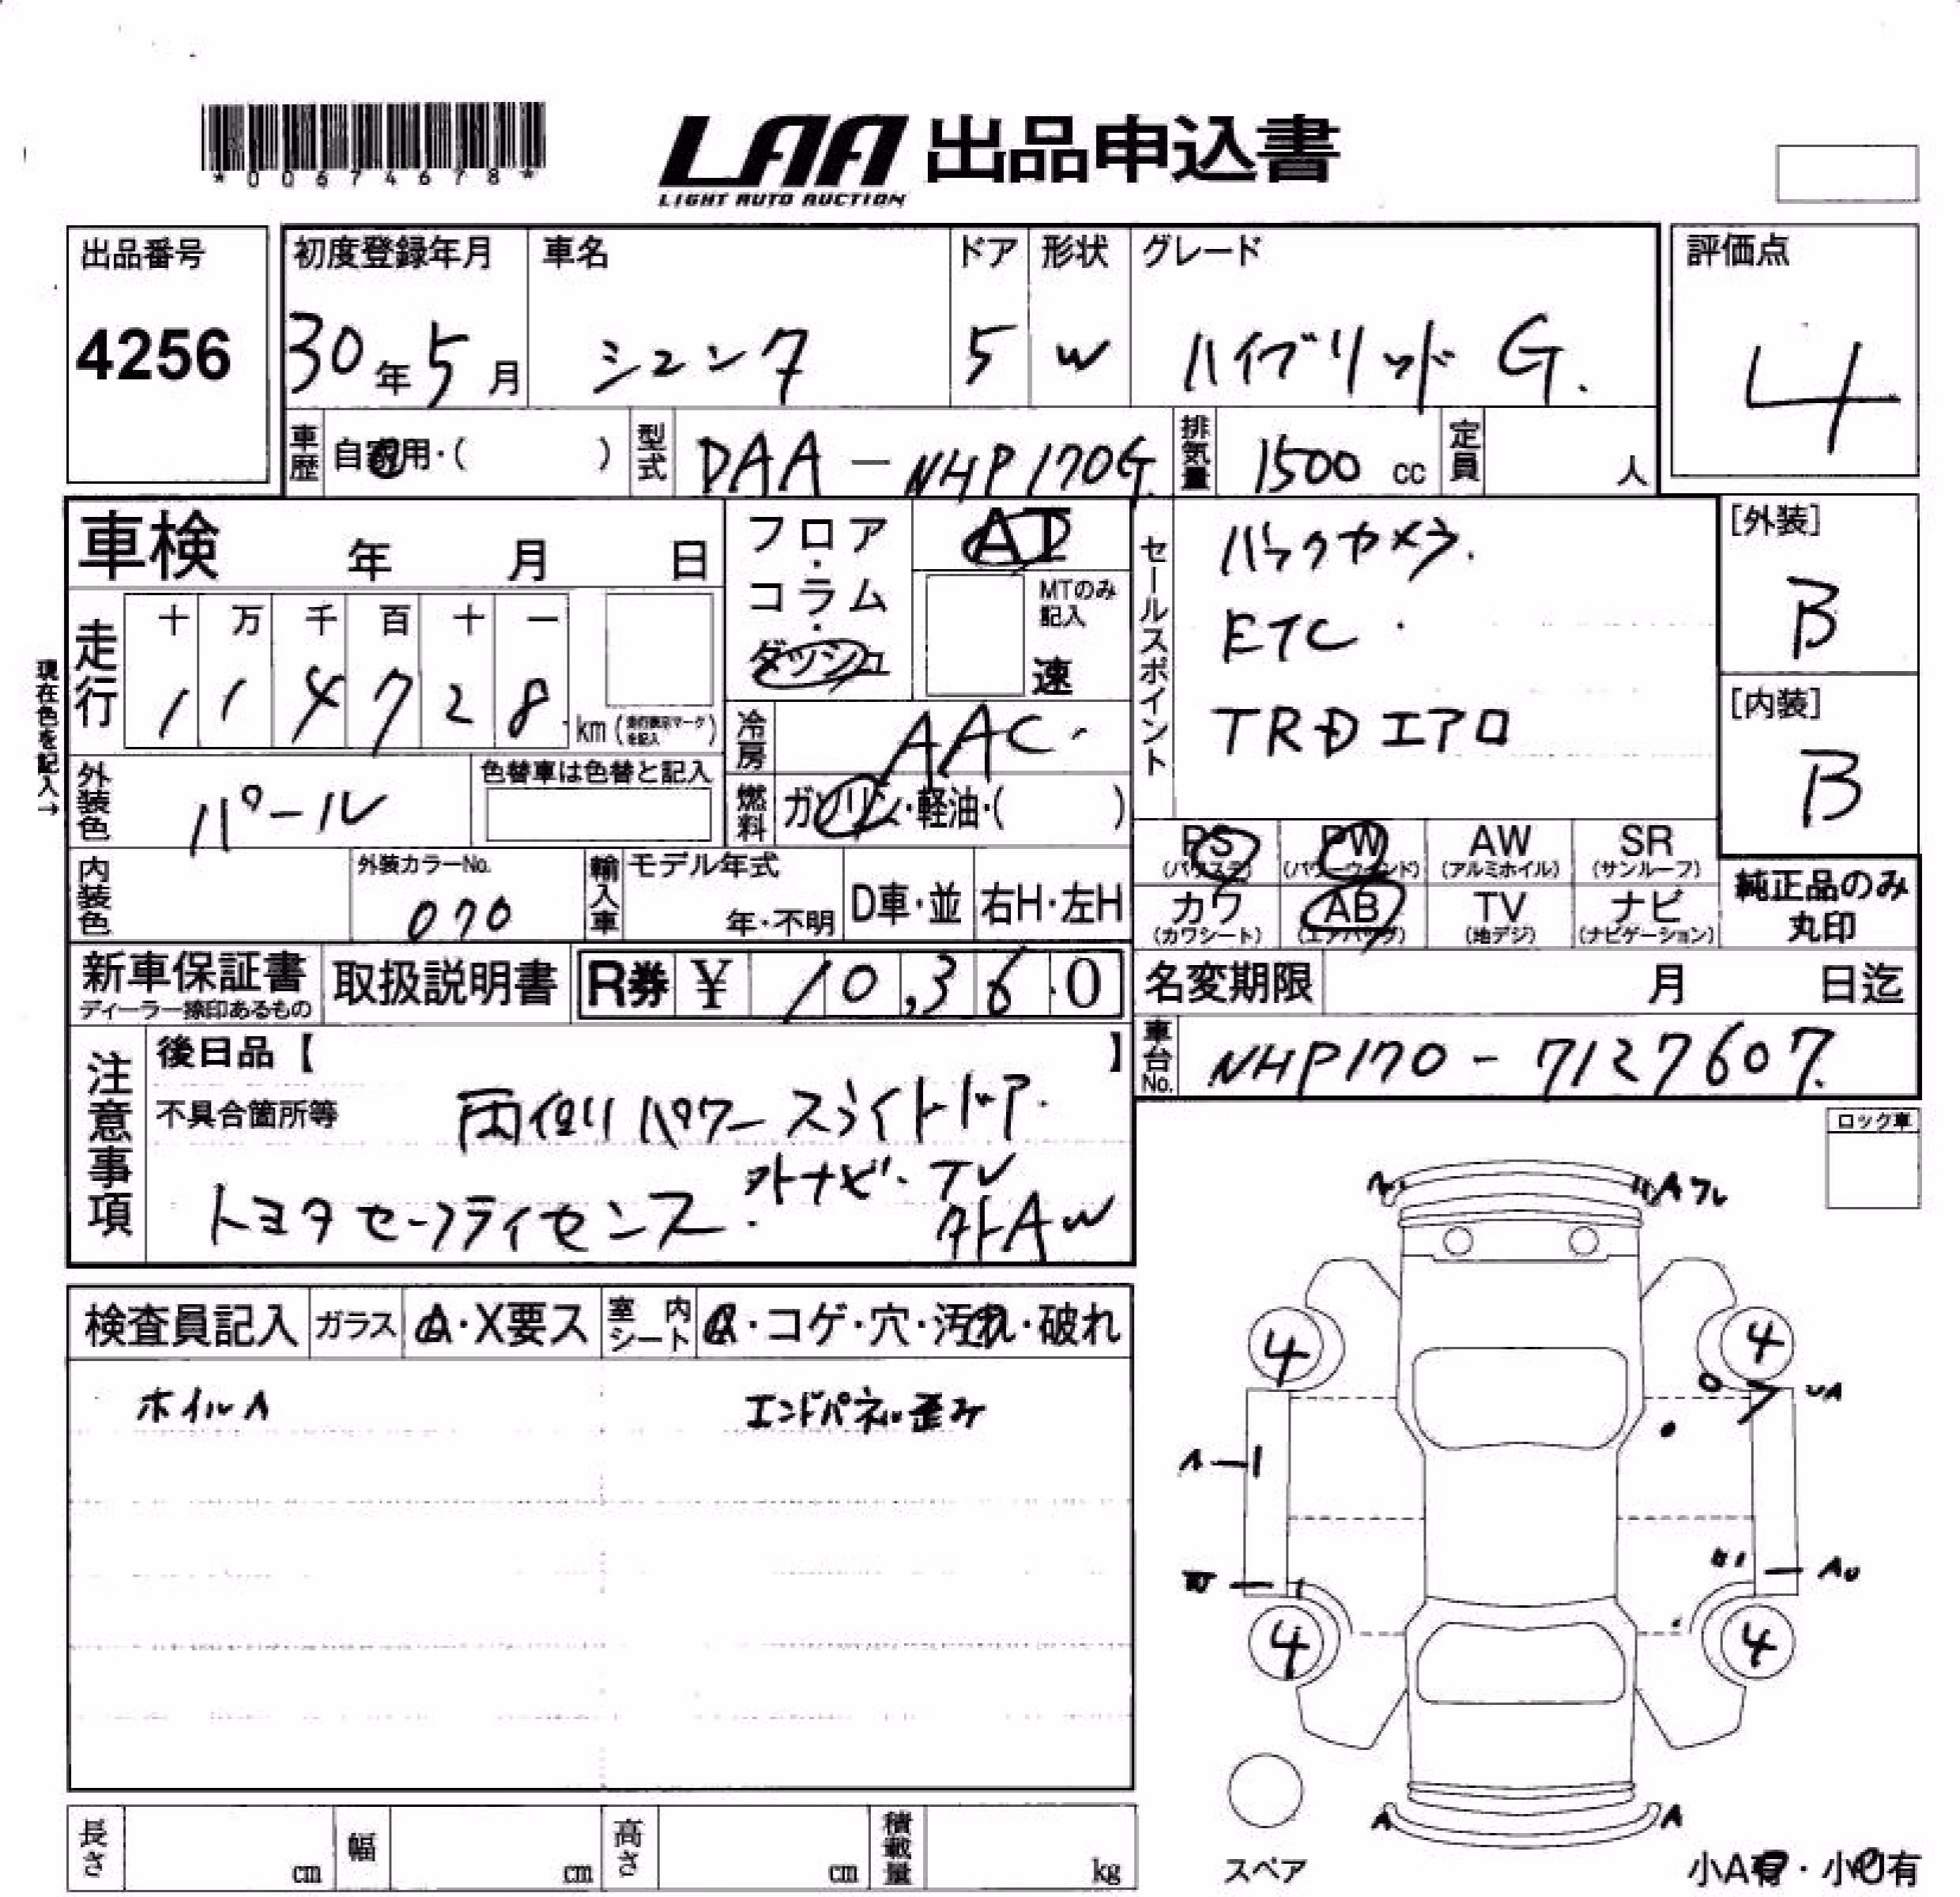 *00674678*
LAA 出品申込書
LIGHT AUTO AUCTION
出品番号
4256
初度登録年月
30年5月
車名
シエンタ
ドア
5
形状
W
グレード
ハイブリッド G.
評価点
4
車歴 自家用・( )
型式 DAA-NHP170G
排気量 1500 cc
定員 人
車検 年 月 日
フロア・コラム・ダッシュ
AT
MTのみ記入
速
セールスポイント
バックカメラ.
ETC.
TRDエアロ
[外装]
B
[内装]
B
現在色を記入→
走行
十 万 千 百 十 一
1 1 4 7 2 8
km (走行表示マークを記入)
冷房 AAC.
燃料 ガソリン・軽油・( )
外装色 パール
色替車は色替と記入
PS (パワステ)
PW (パワーウインド)
AW (アルミホイル)
SR (サンルーフ)
カワ (カワシート)
AB (エアバッグ)
TV (地デジ)
ナビ (ナビゲーション)
純正品のみ丸印
内装色
外装カラーNo.
070
輸入車
モデル年式
年・不明
D車・並
右H・左H
新車保証書
ディーラー捺印あるもの
取扱説明書
R券 ¥ 10,360
名変期限 月 日迄
車台No. NHP170-7127607.
注意事項
後日品【 】
不具合箇所等
両側パワースライドドア.
外ナビ.TV
トヨタセーフティセンス.
外AW
ロック車
検査員記入
ガラス A・X要ス
室内シート
・コゲ・穴・汚れ・破れ
ホイルA
エンドパネル歪み
A
Aワレ
4
4
UA
A
AU
4
4
A
A
スペア
小A有・小U有
長さ cm
幅 cm
高さ cm
積載量 kg